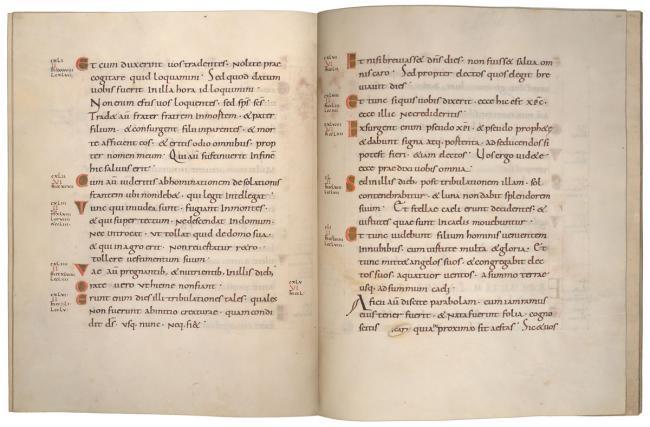 Et cum duxerint uos tradentes · Nolite prae
cogitare quid loquamini · Sed quod datum
uobis fuerit Inilla hora id loquimini ·
Non enim estis uos loquentes · sed sps scs ·
Tradet au frater fratrem Inmortem · & pater
filium · & consurgent filii inparentes · & mor
te afficient eos · & eritis odio omnibus prop
ter nomen meum · Qui au sustinuerit Infine
hic saluus erit ·
Cum au uideritis abhominationem desolationis
stantem ubi nondebet · qui legit Intellegat
Tunc qui Iniudea sunt · fugiant Inmontes ·
& qui super tectum · Nedescendat Indomum ·
Nec Introeat · ut tollat quid dedomo sua ·
& qui in agro erit · Non reuertatur retro ·
tollere uestimentum suum ·
Vae au pregnantib; & nutrientib; Inillis dieb;
Orate uero ut hieme nonfiant ·
Erunt enim dies illi tribulationes tales · quales
Non fuerunt abinitio creaturae · quam condi
dit ds · usq; nunc · Neq; fi&
Et nisi breuiass& dns dies · non fuiss& salua om
nis caro · Sed propter electos quos elegit bre
uiauit dies ·
Et tunc siquis uobis dixerit · ecce hic est xpc ·
ecce illic Necredideritis ·
Exsurgent enim pseudo xpi · & pseudo proph&ae
& dabunt signa & portenta · adseducendos si
potest fieri · etiam electos · Uos ergo uid&e
ecce praedixi uobis omnia ·
Sed Inillis dieb; post tribulationem illam · sol
contenebrabitur · & luna non dabit splendorem
suum · Et stellae caeli erunt decidentes · &
uirtutes quae sunt Incaelis mouebuntur ·
Et tunc uidebunt filium hominis uenientem
Innubibus · cum uirtute multa & gloria · Et
tunc mitt& angelos suos · & congregabit elec
tos suos · aquattuor uentis · a summo terrae
usq; adsummum caeli ·
Aficu au discite parabolam · cum iam ramus
eius tener fuerit · & Nata fuerint folia · cogno
scitis quia In proximo sit aestas · Sic & uos